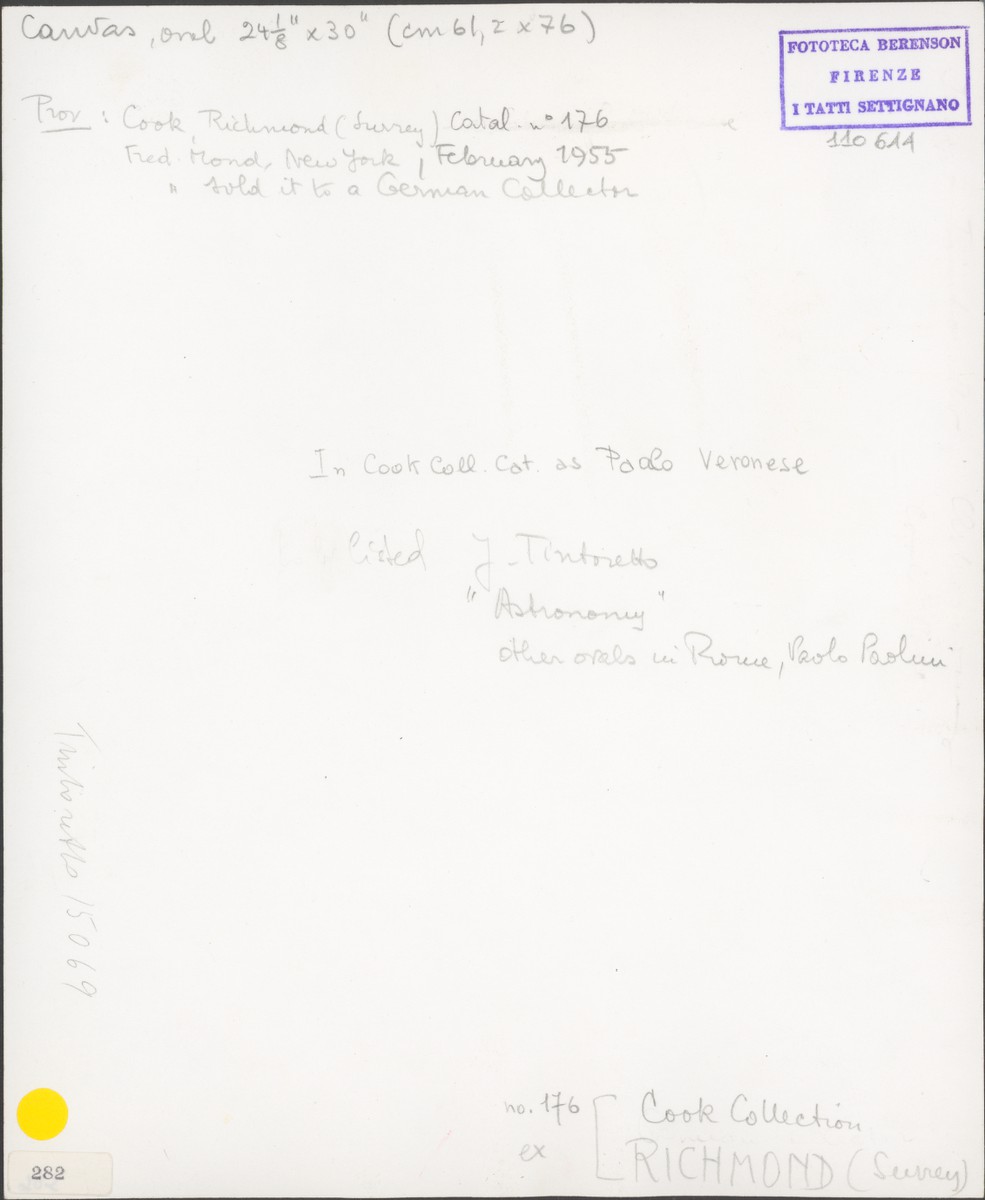 Canvas, oval 24 1/8" x 30" (cm 61,2 x 76)
FOTOTECA BERENSON
FIRENZE
I TATTI SETTIGNANO
110 614
Prov: Cook, Richmond (Surrey) Catal. n° 176
Fred. Mond, New York, February 1955
" sold it to a German Collector
In Cook Coll. Cat. as Paolo Veronese
listed J. Tintoretto
"Astronomy"
other ovals in Rome, Paolo Paolini
Tintoretto 15069
no. 176 [ Cook Collection
ex RICHMOND (Surrey)
282